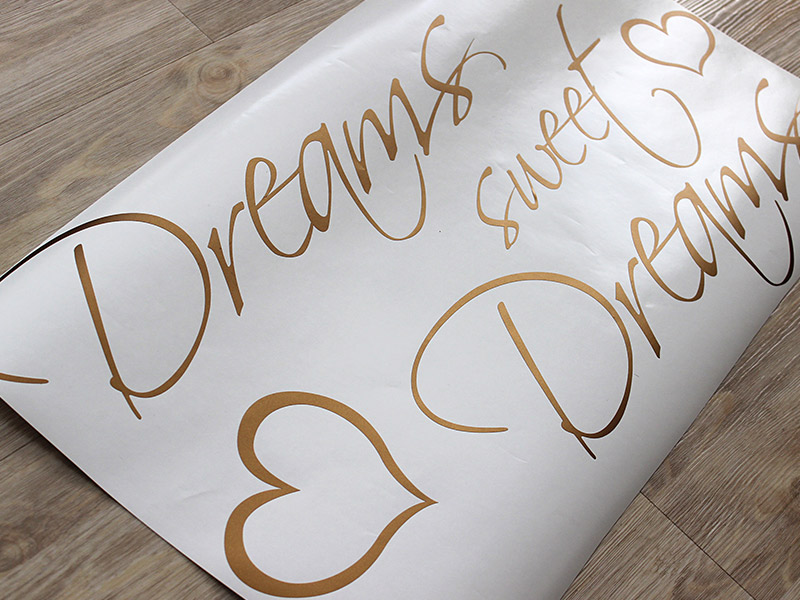 Dreams
sweet
Dreams